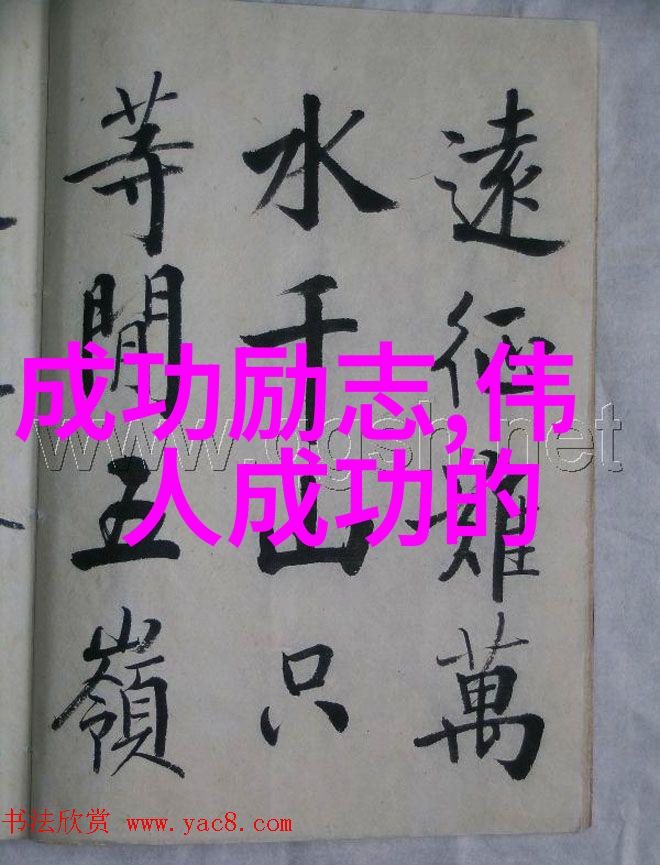 遠征難萬
水千山只
等閒五嶺
成功励志,伟
人成功的
书法欣赏 www.yac8.com